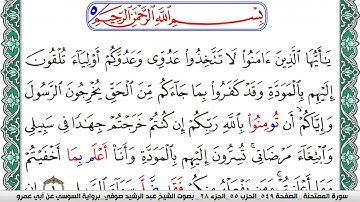 بِسْمِ اللَّهِ الرَّحْمَٰنِ الرَّحِيمِ
يَٰأَيُّهَا الَّذِينَ ءَامَنُوا لَا تَتَّخِذُوا عَدُوِّى وَعَدُوَّكُمْ أَوْلِيَآءَ تُلْقُونَ
إِلَيْهِم بِالْمَوَدَّةِ وَقَدْ كَفَرُوا بِمَا جَآءَكُم مِّنَ الْحَقِّ يُخْرِجُونَ الرَّسُولَ
وَإِيَّاكُمْ أَن تُومِنُوا بِاللَّهِ رَبِّكُمْ إِن كُنتُمْ خَرَجْتُمْ جِهَٰدًا فِى سَبِيلِى
وَابْتِغَآءَ مَرْضَاتِى تُسِرُّونَ إِلَيْهِم بِالْمَوَدَّةِ وَأَنَا أَعْلَم بِمَا أَخْفَيْتُمْ
سورة الممتحنة. الصفحة ٥٤٩ الحزب ٥٥ الجزء ٢٨. بصوت الشيخ عبد الرشيد صوفي. برواية السوسي عن أبي عمرو